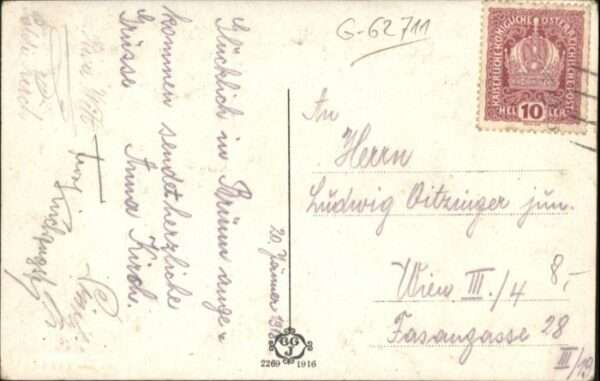 G-62711
Glücklich in Brünn ange-
kommen sendet herzliche
Grüsse Anna Kirch.
20. Jänner 1918
KAISERLICHE KÖNIGLICHE ÖSTERREICHISCHE POST
HEL 10 LER
An
Herrn
Ludwig Oitzinger jun.
Wien III./4
8,-
Fasangasse 28
III/19
GG
J
2269 1916